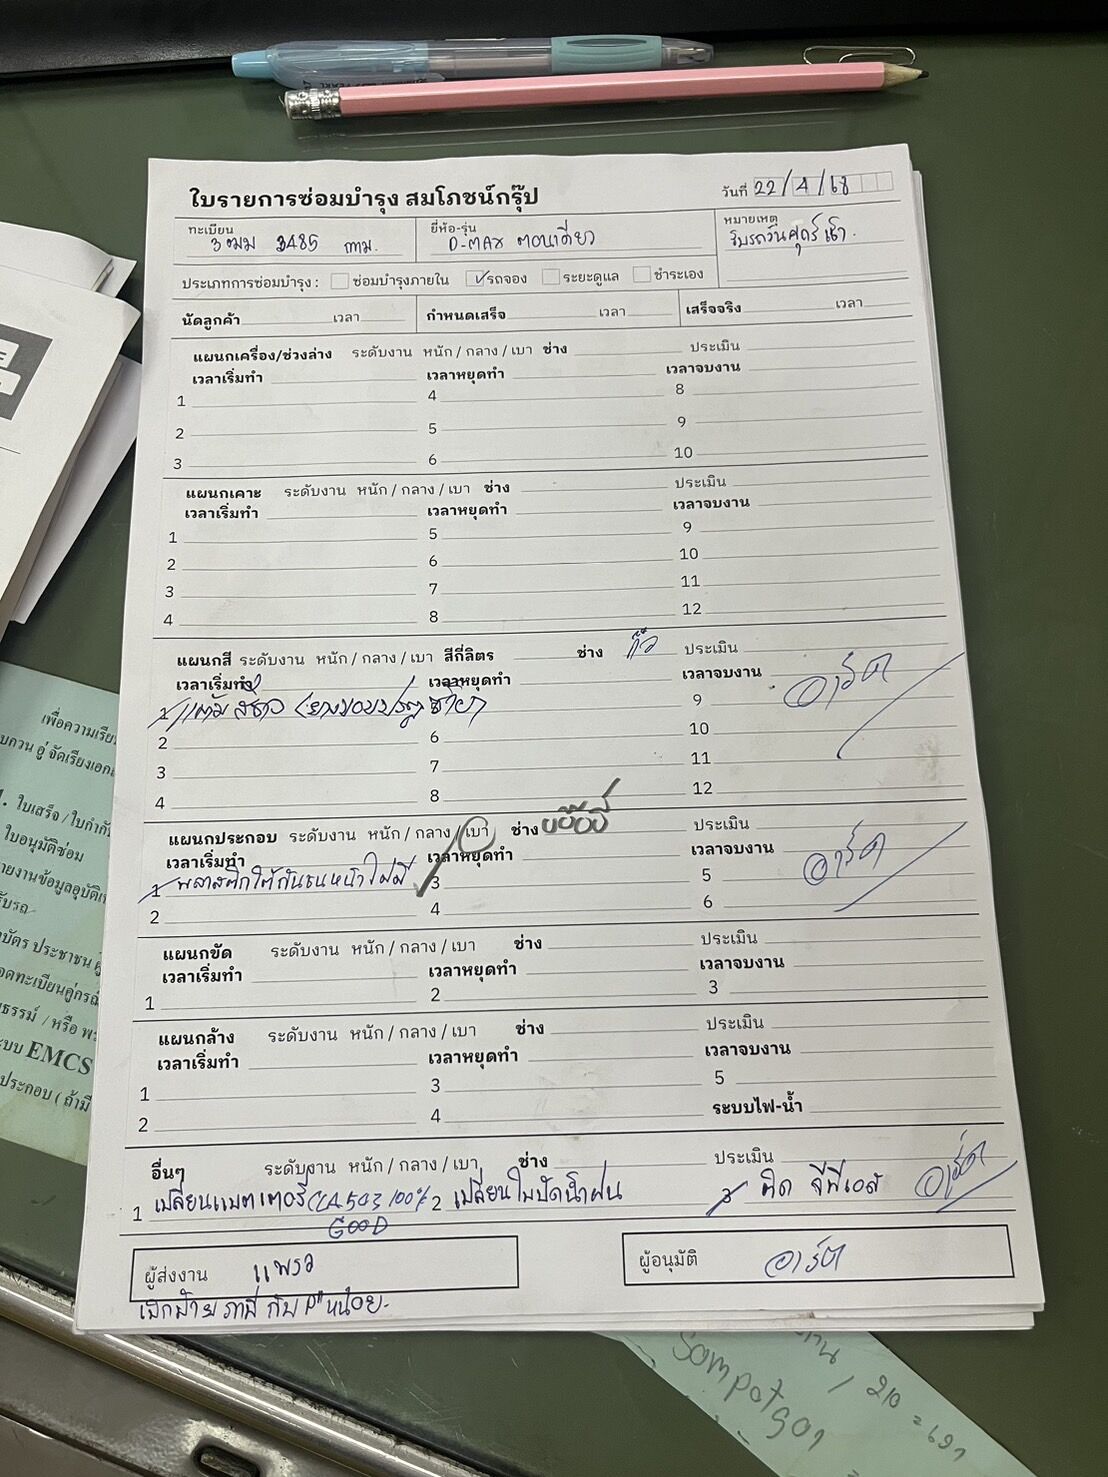 ใบรายการซ่อมบำรุง สมโภชน์กรุ๊ป
วันที่ 22/4/68
ทะเบียน 3ฒม 3485 กทม.
ยี่ห้อ-รุ่น D-MAX ตอนเดียว
หมายเหตุ รับรถวันศุกร์ เช้า.
ประเภทการซ่อมบำรุง : ซ่อมบำรุงภายใน ✓ รถจอง ระยะดูแล ชำระเอง
นัดลูกค้า เวลา กำหนดเสร็จ เวลา เสร็จจริง เวลา
แผนกเครื่อง/ช่วงล่าง ระดับงาน หนัก / กลาง / เบา ช่าง ประเมิน
เวลาเริ่มทำ เวลาหยุดทำ เวลาจบงาน
1 4 8
2 5 9
3 6 10
แผนกเคาะ ระดับงาน หนัก / กลาง / เบา ช่าง ประเมิน
เวลาเริ่มทำ เวลาหยุดทำ เวลาจบงาน
1 5 9
2 6 10
3 7 11
4 8 12
แผนกสี ระดับงาน หนัก / กลาง / เบา สีกี่ลิตร ช่าง ประเมิน
เวลาเริ่มทำ เวลาหยุดทำ เวลาจบงาน อาร์ต
1 แต้ม สีขาว 9
2 6 10
3 7 11
4 8 12
แผนกประกอบ ระดับงาน หนัก / กลาง / เบา ช่าง ประเมิน
เวลาเริ่มทำ เวลาหยุดทำ เวลาจบงาน อาร์ต
1 พลาสติกใต้กันชนหน้าไม่มี 3 5
2 4 6
แผนกขัด ระดับงาน หนัก / กลาง / เบา ช่าง ประเมิน
เวลาเริ่มทำ เวลาหยุดทำ เวลาจบงาน
1 2 3
แผนกล้าง ระดับงาน หนัก / กลาง / เบา ช่าง ประเมิน
เวลาเริ่มทำ เวลาหยุดทำ เวลาจบงาน
1 3 5
2 4 ระบบไฟ-น้ำ
อื่นๆ ระดับงาน หนัก / กลาง / เบา ช่าง ประเมิน
1 เปลี่ยนแบตเตอรี่ 100% 2 เปลี่ยนใบปัดน้ำฝน 3 ติด จีพีเอส อาร์ต
GOOD
ผู้ส่งงาน แพรว
ผู้อนุมัติ อาร์ต
เบิกป้ายภาษี กับ P' หน่อย.
เพื่อความเรีย
ใบเสร็จ / ใบกำกั
ใบอนุมัติซ่อม
บัตร ประชาชน
ธรรม์ / หรือ พร
ระบบ EMCS
ประกอบ ( ถ้ามี
Sompotgor
/ 210 = 691